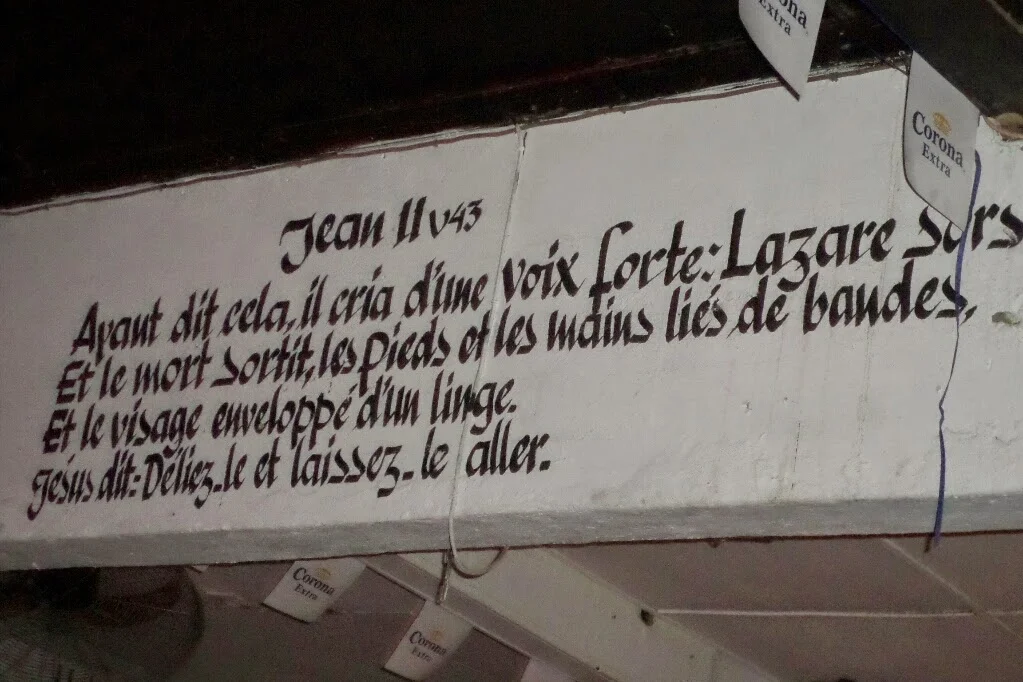 ona
Extra
Corona
Extra
Jean 11 v43
Ayant dit cela, il cria d'une voix forte: Lazare sors
Et le mort sortit, les pieds et les mains liés de bandes,
Et le visage enveloppé d'un linge.
Jésus dit: Déliez-le et laissez-le aller.
Corona
Extra
Corona
Extra